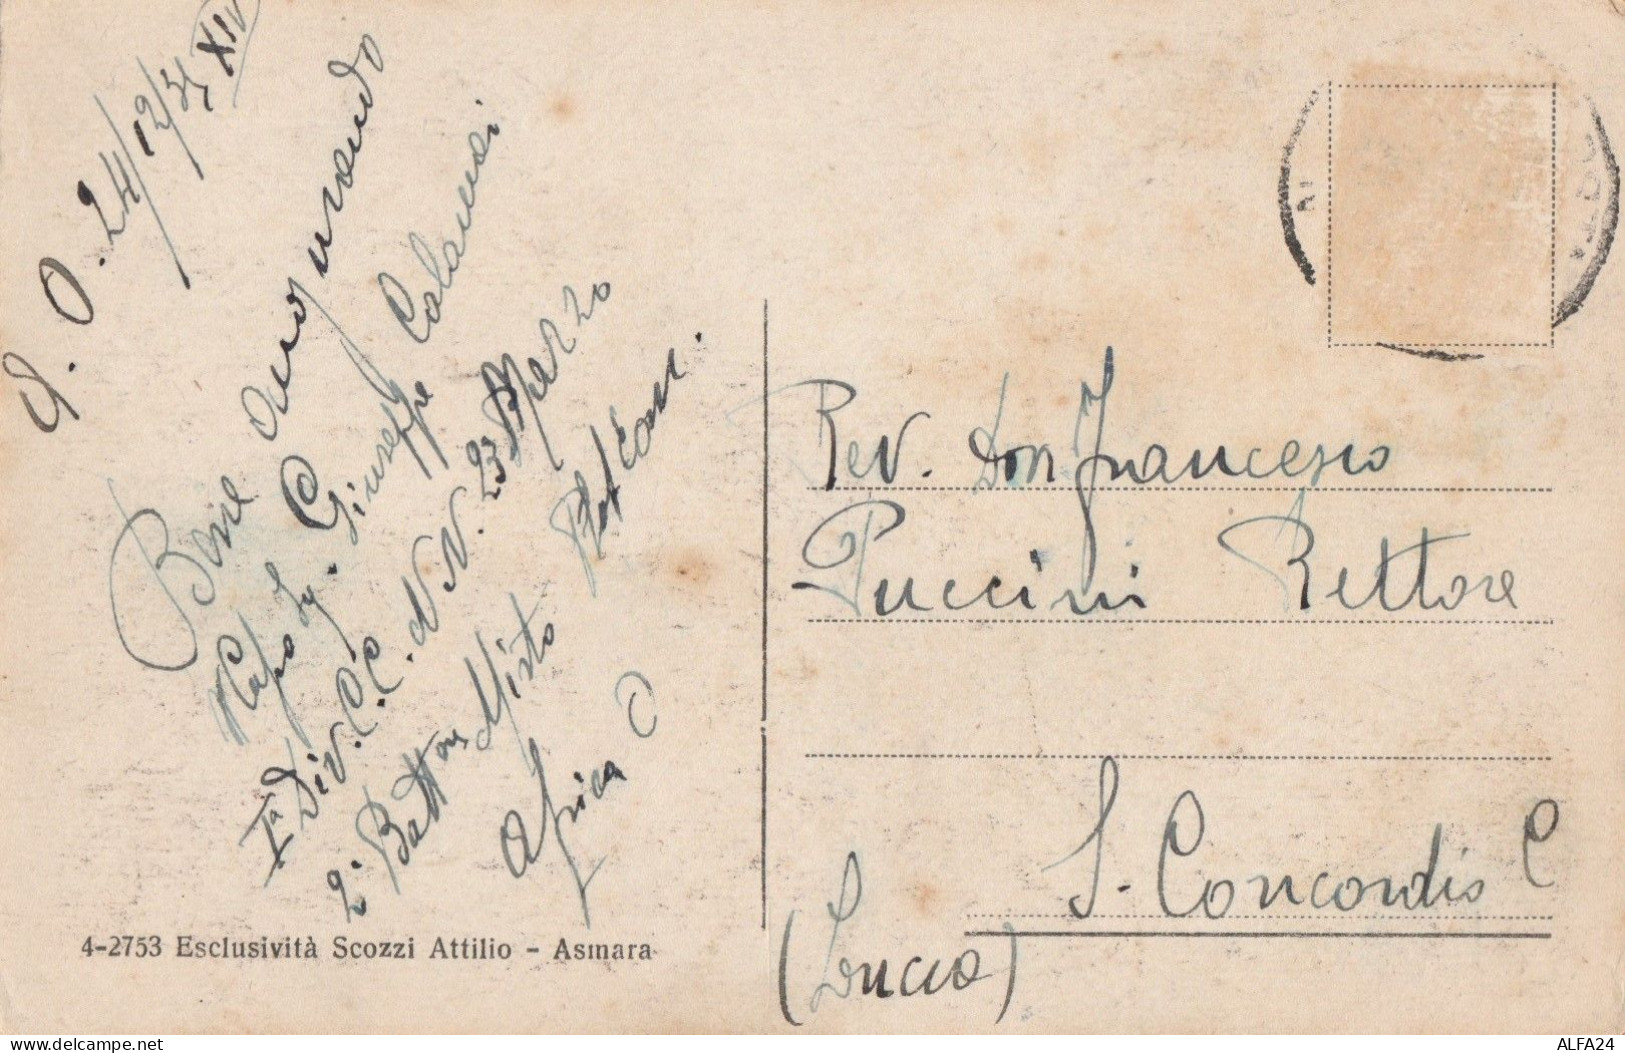 A. O. 24/12/35 XIV
Bene augurando
Capo sq. Giuseppe Calamai
Iª Div. C.C. N.N. 23 Marzo
2° Batt Misto
Africa O
Rev. Don Francesco
Puccini Rettore
S. Concordio C
(Lucca)
4-2753 Esclusività Scozzi Attilio - Asmara
delcampe.net
ALFA24